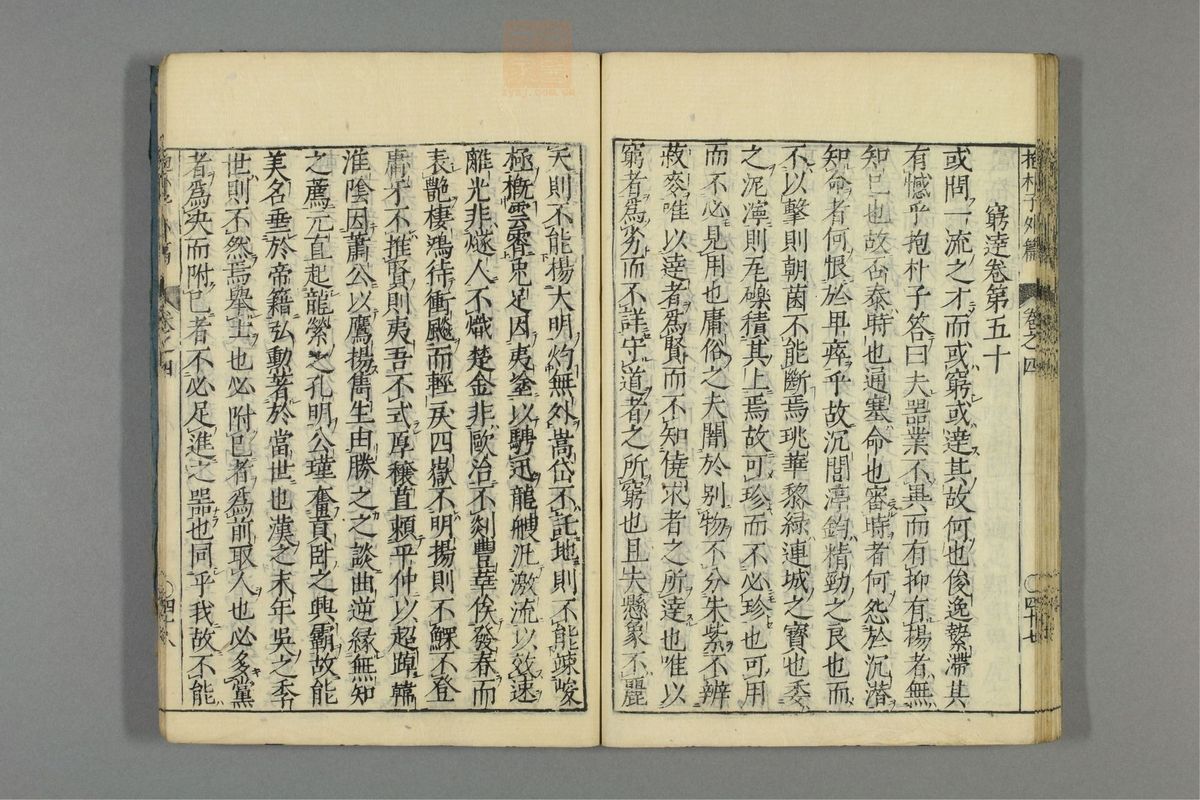 抱朴子外篇 卷之四 〇四十七
窮達卷第五十
或問一流之才而或窮或達其故何也俊逸縶滯其
有憾乎抱朴子答曰夫器業不異而有抑有揚者無
知已也故否泰時也通塞命也審時者何怨於沉潛
知命者何恨於卑瘁乎故沉閭渟鈞精勁之良也而
不以擊則朝菌不能斷焉珧華黎綠連城之寶也委
之泥濘則瓦礫積其上焉故可珍而不必珍也可用
而不必見用也庸俗之夫闇於别物不分朱紫不辨
菽麥唯以達者爲賢而不知僥求者之所達也唯以
窮者爲劣而不詳守道者之所窮也且夫懸象不麗
天則不能揚大明灼無外嵩岱不託地則不能竦峻
極槪雲霄兕足因夷塗以騁迅龍艘汎激流以效速
離光非燧人不熾楚金非歐冶不剡豐華俟發春而
表艷棲鴻待衝飈而輕戾四嶽不明揚則不鰥不登
庸牙不推賢則夷吾不式厚穰苴頼平仲以超踔韓
淮陰因蕭公以鷹揚雋生由勝之之談曲逆緣無知
之薦元直起龍縈之孔明公瑾奮貢卧之興霸故能
美名垂於帝籍弘勳著於當世也漢之末年吳之季
世則不然焉舉士也必附已者爲前取人也必多黨
者爲决而附已者不必足進之器也同乎我故不能
卷之四 〇四十八